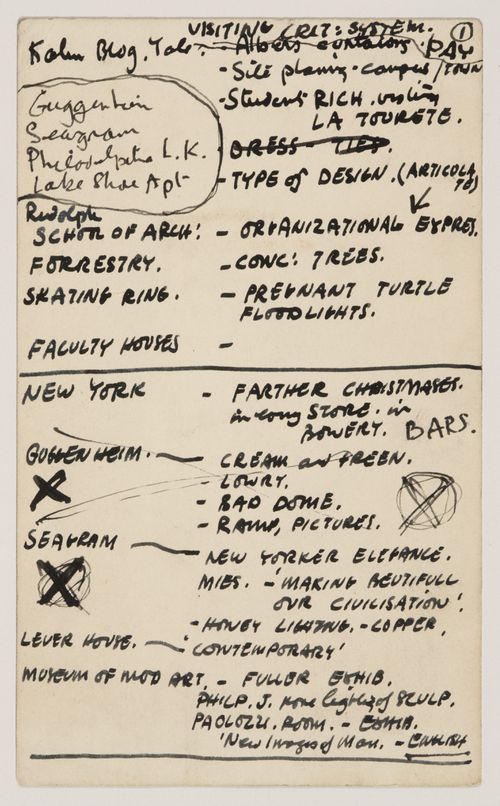 VISITING CRIT: SYSTEM. 1
Kahn Bldg, Yale - Albers PAY
- Site planing - campus / TOWN
- Student RICH. visiting
LA TOURETE.
Guggenheim
Seagram
Philadelphia L.K.
Lake Shore Apt
DRESS - TIES.
- TYPE of DESIGN. (ARTICOLA
TE)
Rudolph
SCHOOL OF ARCH: - ORGANIZATIONAL EXPRES.
FORRESTRY. - CONC: TREES.
SKATING RING. - PREGNANT TURTLE
FLOODLIGHTS.
FACULTY HOUSES -
NEW YORK - FARTHER CHRISTMASES.
in long STORE. in
BOWERY. BARS.
GUGGENHEIM. - CREAM and GREEN.
- LOWRY.
- BAD DOME.
- RAMP, PICTURES.
SEAGRAM - NEW YORKER ELEGANCE.
MIES. - 'MAKING BEUTIFULL
OUR CIVILISATION'.
- HONEY LIGHTING. - COPPER,
LEVER HOUSE. - 'CONTEMPORARY'
MUSEUM OF MOD ART. - FULLER EXHIB.
PHILP. J. of SCULP.
PAOLOZZI. ROOM. - EXHIB.
'New Images of Man. - ENGLISH